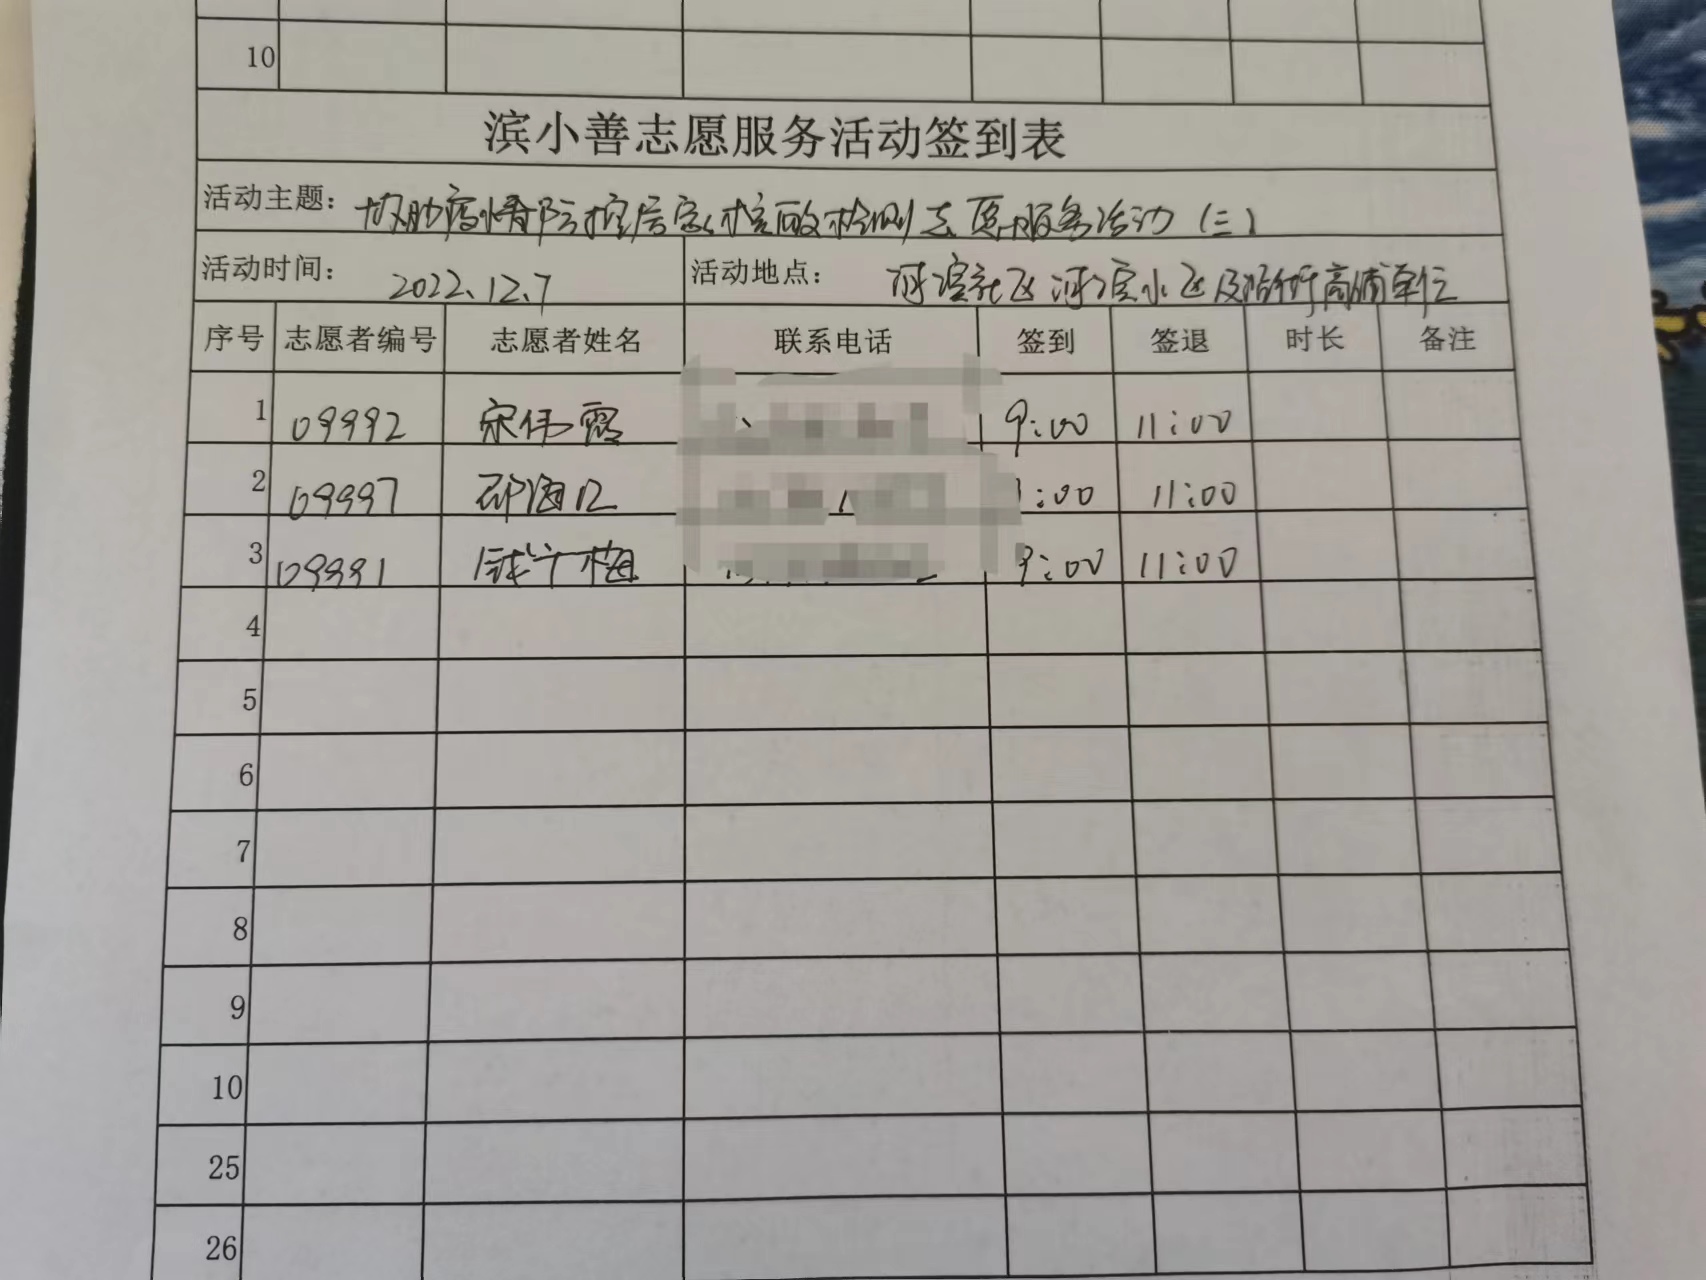 10
滨小善志愿服务活动签到表
活动主题: 协助疫情防控居家核酸检测志愿服务活动(三)
活动时间: 2022.12.7 活动地点: 河滨社区河滨小区及沿街商铺单位
序号 志愿者编号 志愿者姓名 联系电话 签到 签退 时长 备注
1 09992 宋伟霞 9:00 11:00
2 09997 邵海江 :00 11:00
3 09991 梅 9:00 11:00
4
5
6
7
8
9
10
25
26